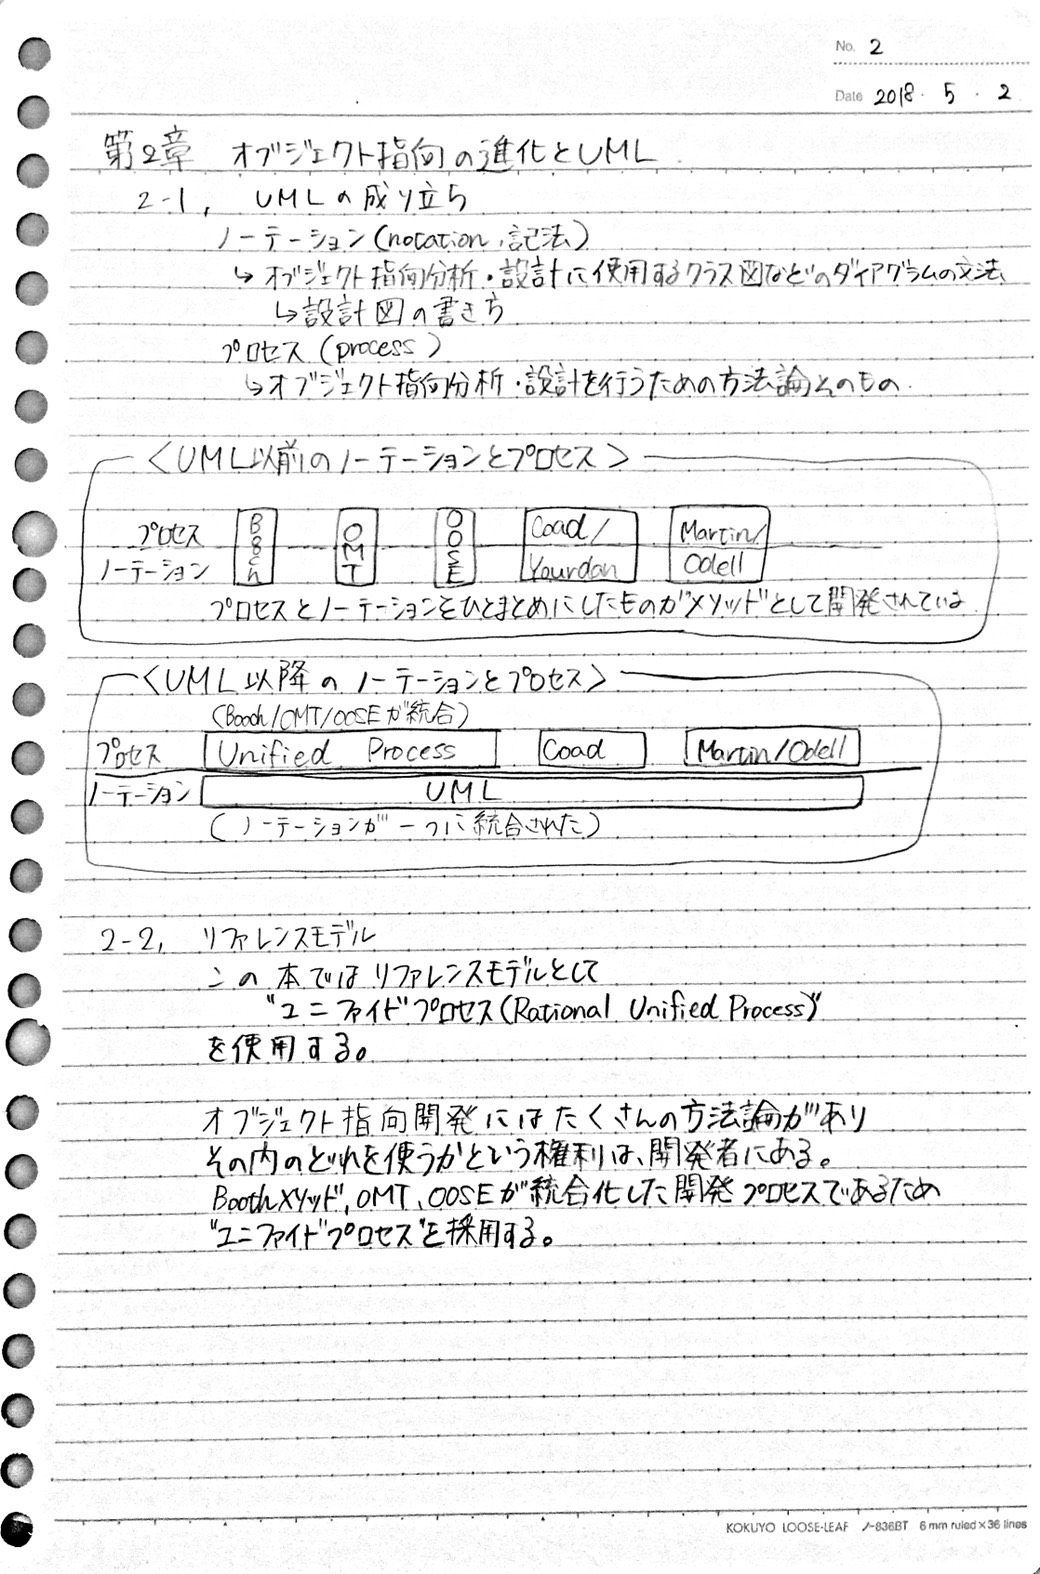 No. 2
Date 2018 . 5 . 2
第2章 オブジェクト指向の進化とUML
2-1, UMLの成り立ち
ノーテーション(notation, 記法)
↳オブジェクト指向分析・設計に使用するクラス図などのダイアグラムの文法
↳設計図の書き方
プロセス(process)
↳オブジェクト指向分析・設計を行うための方法論そのもの.
<UML以前のノーテーションとプロセス>
プロセス
ノーテーション
Booch
OMT
OOSE
Coad/
Yourdon
Martin/
Odell
プロセスとノーテーションをひとまとめにしたものがメソッドとして開発されている
<UML以降のノーテーションとプロセス>
(Booch/OMT/OOSEが統合)
プロセス Unified Process Coad Martin/Odell
ノーテーション UML
(ノーテーションが一つに統合された)
2-2, リファレンスモデル
この本ではリファレンスモデルとして
"ユニファイドプロセス(Rational Unified Process)"
を使用する。
オブジェクト指向開発にはたくさんの方法論があり
その内のどれを使うかという権利は、開発者にある。
Boothメソッド, OMT, OOSEが統合化した開発プロセスであるため
"ユニファイドプロセス"を採用する。
KOKUYO LOOSE-LEAF ノ-836BT 6 mm ruled×36 lines